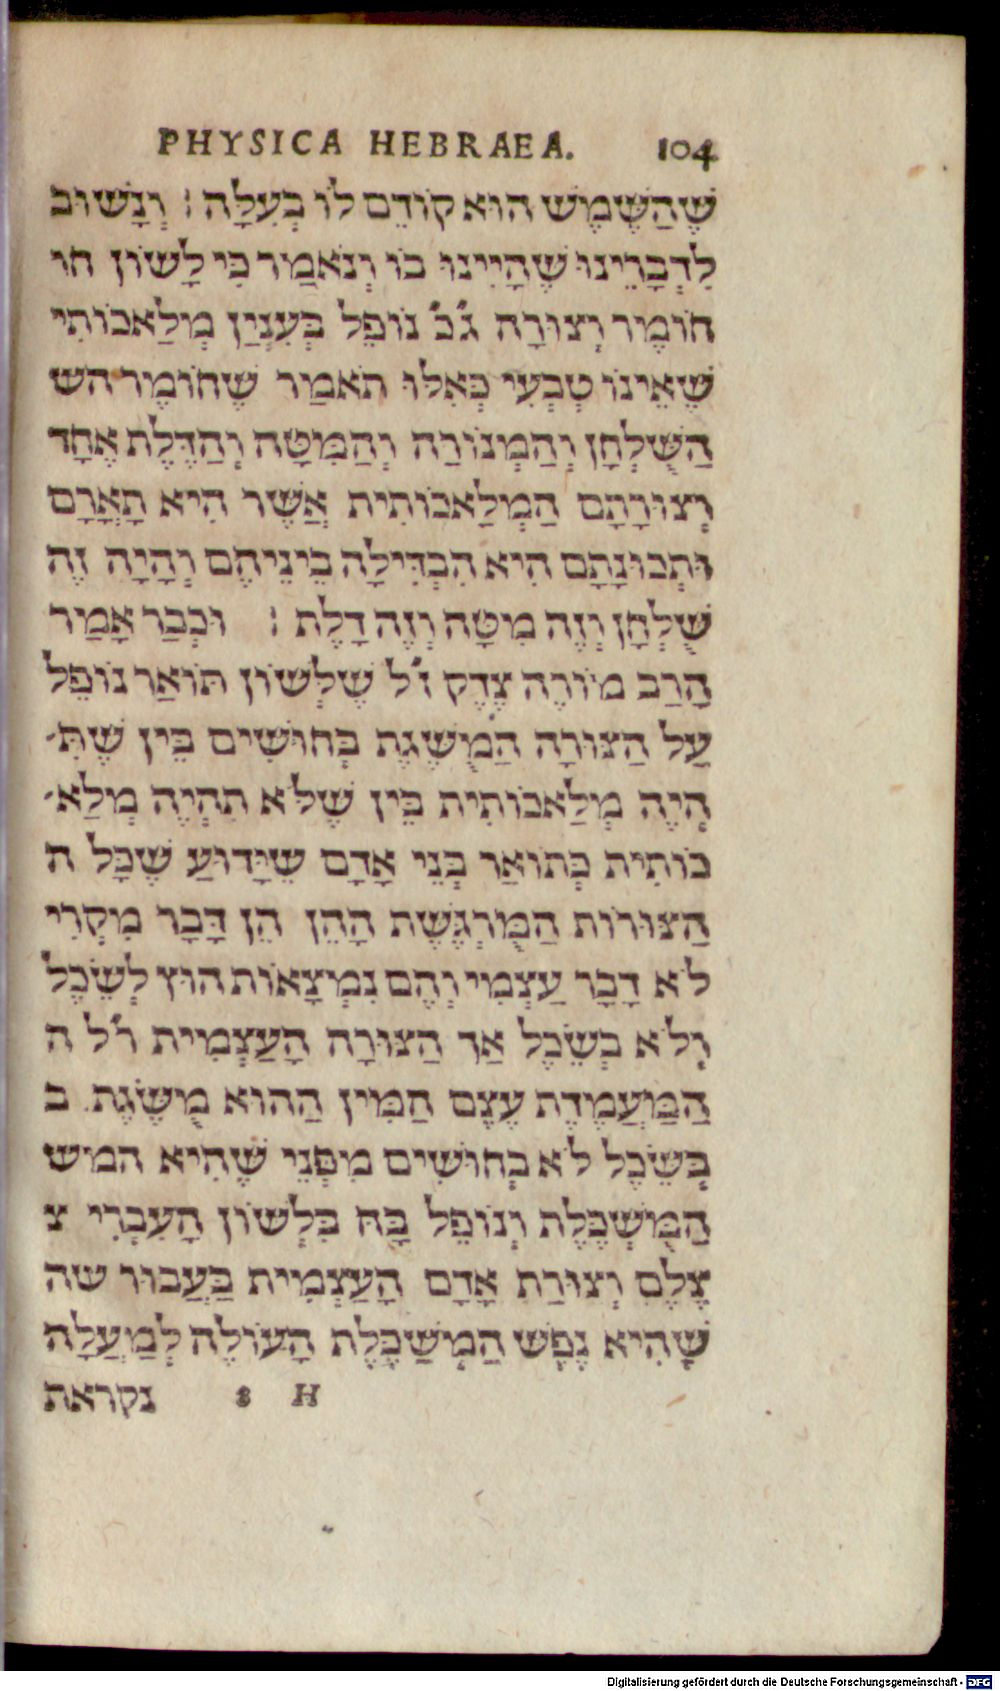 PHYSICA HEBRAEA. 104
שֶׁהַשֶּׁמֶשׁ הוּא קוֹדֵם לוֹ בְּעִלָּה : וְנָשׁוּב
לִדְבָרֵינוּ שֶׁהָיִינוּ בוֹ וְנֹאמַר כִּי לָשׁוֹן חו
חוֹמֶר וְצוּרָה ג״כ נוֹפֵל בְּעִנְיַן מְלַאכוֹתִי
שֶׁאֵינוֹ טִבְעִי כְּאִלּוּ תֹאמַר שֶׁחוֹמֶר הש
הַשֻּׁלְחָן וְהַמְּנוֹרַה וְהַמִּטָּה וְהַדֶּלֶת אֶחָד
וְצוּרָתָם הַמְלַאכוֹתִית אֲשֶׁר הִיא תָאֳרָם
וּתְבוּנָתָם הִיא הִבְדִּילָה בֵינֵיהֶם וְהָיָה זֶה
שֻׁלְחָן וְזֶה מִטָּה וְזֶה דָלֶת : וּכְבַר אָמַר
הָרַב מוֹרֶה צֶדֶק ז״ל שֶׁלְּשׁוֹן תּוֹאַר נוֹפֵל
עַל הַצּוּרָה הַמֻּשֶׂגֶת בְּחוּשִׁים בֵּין שֶׁתִּ־
הְיֶה מְלַאכוֹתִית בֵּין שֶׁלֹּא תִהְיֶה מְלַא־
כוֹתִית כְּתוֹאַר בְּנֵי אָדָם שֶׁיָּדוּעַ שֶׁכָּל ה
הַצּוּרוֹת הַמֻּרְגֶּשֶׁת הָהֵן הֵן דָּבָר מִקְרִי
לֹא דָבָר עַצְמִי וְהֶם נִמְצָאוֹת הוּץ לְשֵׂכֶל
וְלֹא בְשֵׂכֶל אַך הַצּוּרָה הָעַצְמִית ר״ל ה
הַמַּעֲמֶדֶת עֶצֶם הַמִּין הַהוּא מֻשֶּׂגֶת ב
בְּשֵׂכֶל לֹא בְחוּשִׁים מִפְּנֵי שֶׁהִיא המש
הַמֻּשְׂכֶּלֶת וְנוֹפֵל בָּהּ בִּלְשׁוֹן הָעִבְרִי צ
צֶלֶם וְצוּרַת אָדָם הָעַצְמִית בַּעֲבוּר שה
שֶׁהִיא נֶפֶשׁ הַמַּשְׂכֶּלֶת הָעוֹלֶה לְמַעֲלָה
H 8 נקראת
Digitalisierung gefördert durch die Deutsche Forschungsgemeinschaft - DFG